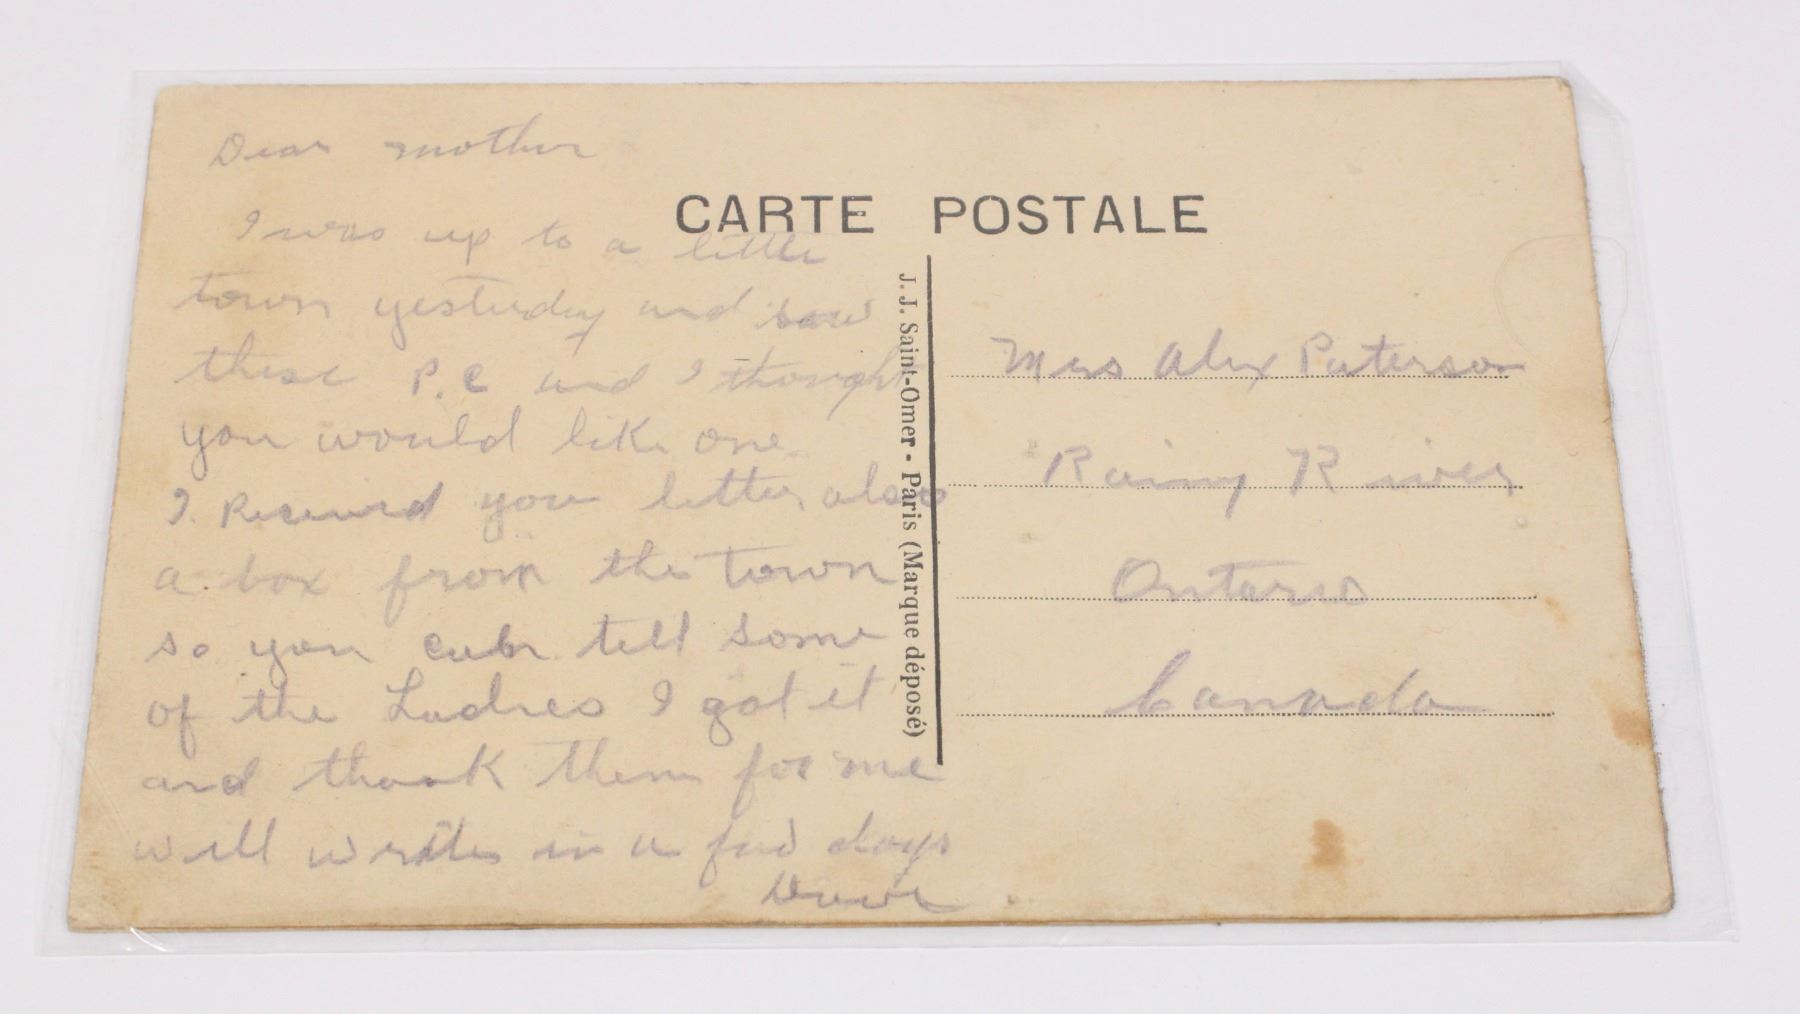 Dear mother
I was up to a little
town yesterday and saw
these P.C and I thought
you would like one.
I Received your letter also
a box from the town
so you can tell some
of the Ladies I got it
and thank them for me
will write in a few days
Dave
CARTE POSTALE
J. J. Saint-Omer - Paris (Marque déposé)
Mrs Alex Paterson
Rainy River
Ontario
Canada